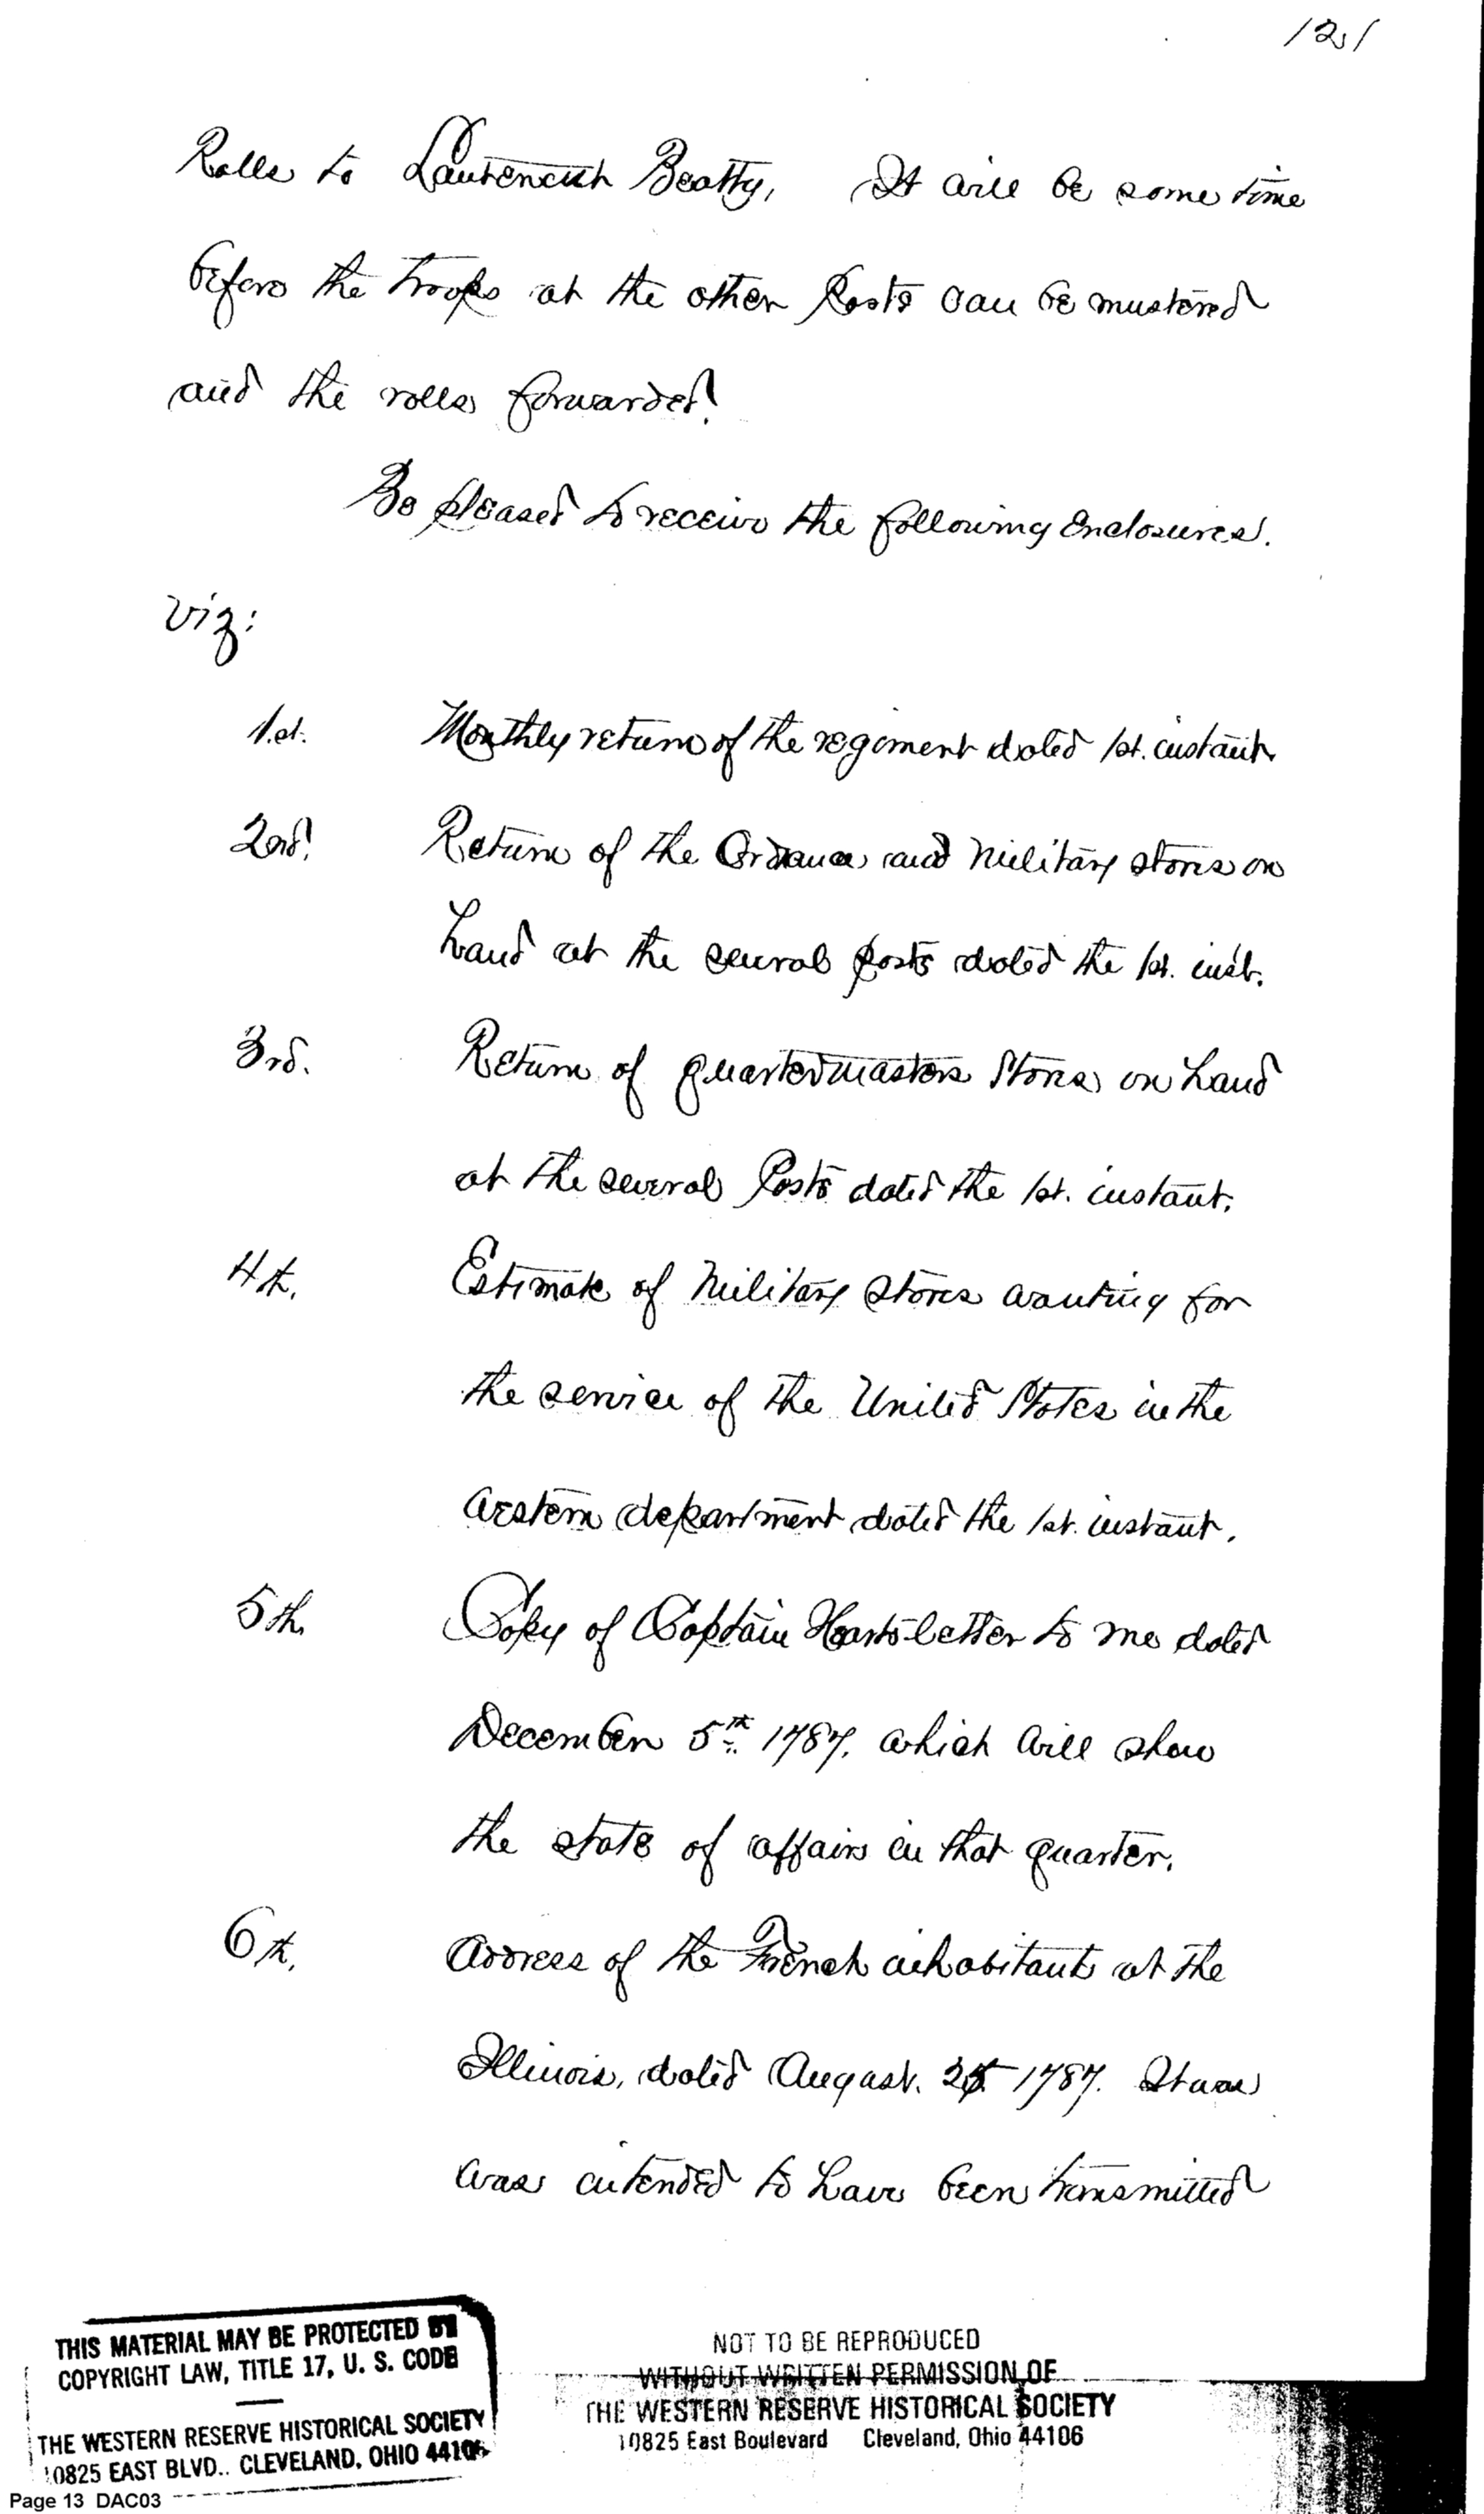 121
Rolls to Lieutenant Beatty, It will be some time
before the troops at the other Posts can be mustered
and the rolls forwarded.
Be pleased to receive the following Enclosures.
viz:
1st. Monthly return of the regiment dated 1st. instant
2nd. Return of the Ordnance and Military stores on
hand at the several posts dated the 1st. inst.
3rd. Return of quartermasters Stores on hand
at the several Posts dated the 1st. instant.
4th. Estimate of Military stores wanting for
the service of the United States in the
western department dated the 1st. instant.
5th. Copy of Captain Harts letter to me dated
December 5th 1787. which will show
the state of affairs in that quarter.
6th. Address of the French inhabitants at the
Illinois, dated August. 1787. It was
was intended to have been transmitted
THIS MATERIAL MAY BE PROTECTED BY
COPYRIGHT LAW, TITLE 17, U. S. CODE
THE WESTERN RESERVE HISTORICAL SOCIETY
10825 EAST BLVD.. CLEVELAND, OHIO 44106
NOT TO BE REPRODUCED
WITHOUT WRITTEN PERMISSION OF
THE WESTERN RESERVE HISTORICAL SOCIETY
10825 East Boulevard Cleveland, Ohio 44106
Page 13 DAC03